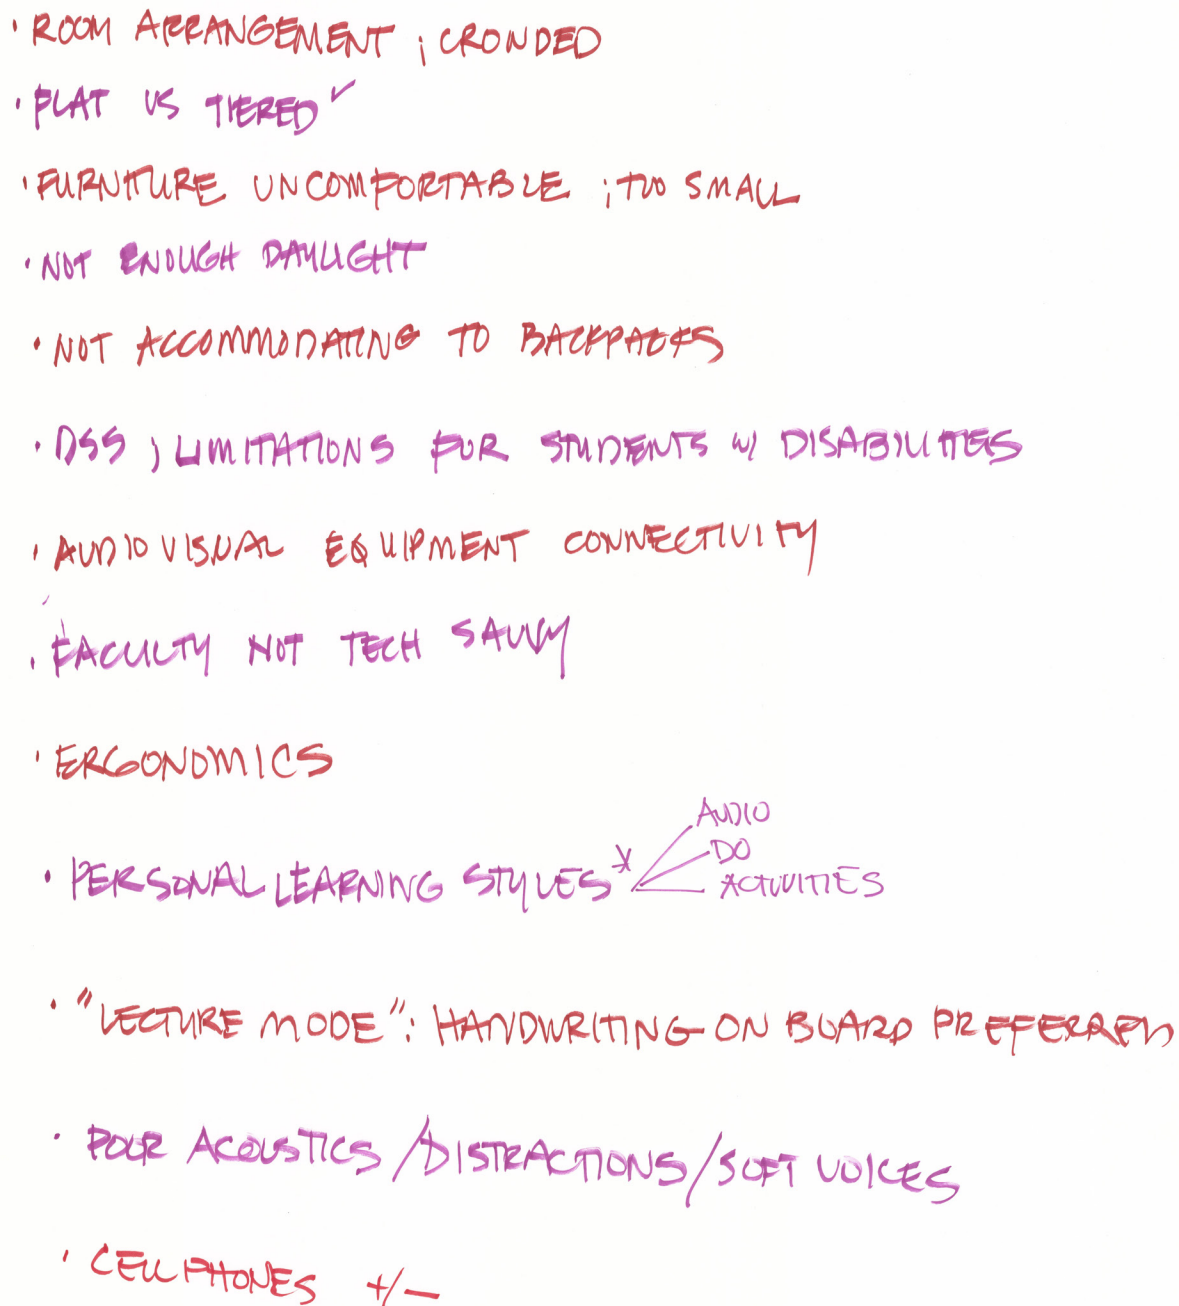 · ROOM ARRANGEMENT ; CROWDED
· FLAT VS TIERED ✓
· FURNITURE UNCOMFORTABLE ; TOO SMALL
· NOT ENOUGH DAYLIGHT
· NOT ACCOMMODATING TO BACKPACKS
· DSS ; LIMITATIONS FOR STUDENTS w/ DISABILITIES
· AUDIO VISUAL EQUIPMENT CONNECTIVITY
· FACULTY NOT TECH SAVVY
· ERGONOMICS
· PERSONAL LEARNING STYLES *
AUDIO
DO
ACTIVITIES
· "LECTURE MODE": HANDWRITING ON BOARD PREFERRED
· POOR ACOUSTICS / DISTRACTIONS / SOFT VOICES
· CELL PHONES +/-